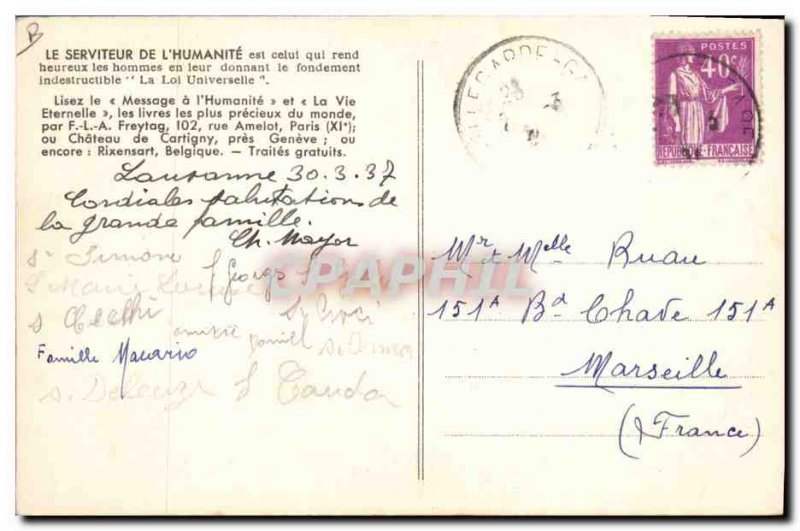 B
LE SERVITEUR DE L'HUMANITÉ est celui qui rend
heureux les hommes en leur donnant le fondement
indestructible " La Loi Universelle ".
Lisez le « Message à l'Humanité » et « La Vie
Eternelle », les livres les plus précieux du monde,
par F.-L.-A. Freytag, 102, rue Amelot, Paris (XIe);
ou Château de Cartigny, près Genève ; ou
encore : Rixensart, Belgique. — Traités gratuits.
Lausanne 30.3.37
Cordiales salutations de
la grande famille.
Ch. Mayor
s. Simon
George
Famille Macario
POSTES
40c
REPUBLIQUE-FRANÇAISE
CPAPHIL
Mr & Melle Ruau
151A Bd Chave 151A
Marseille
(France)